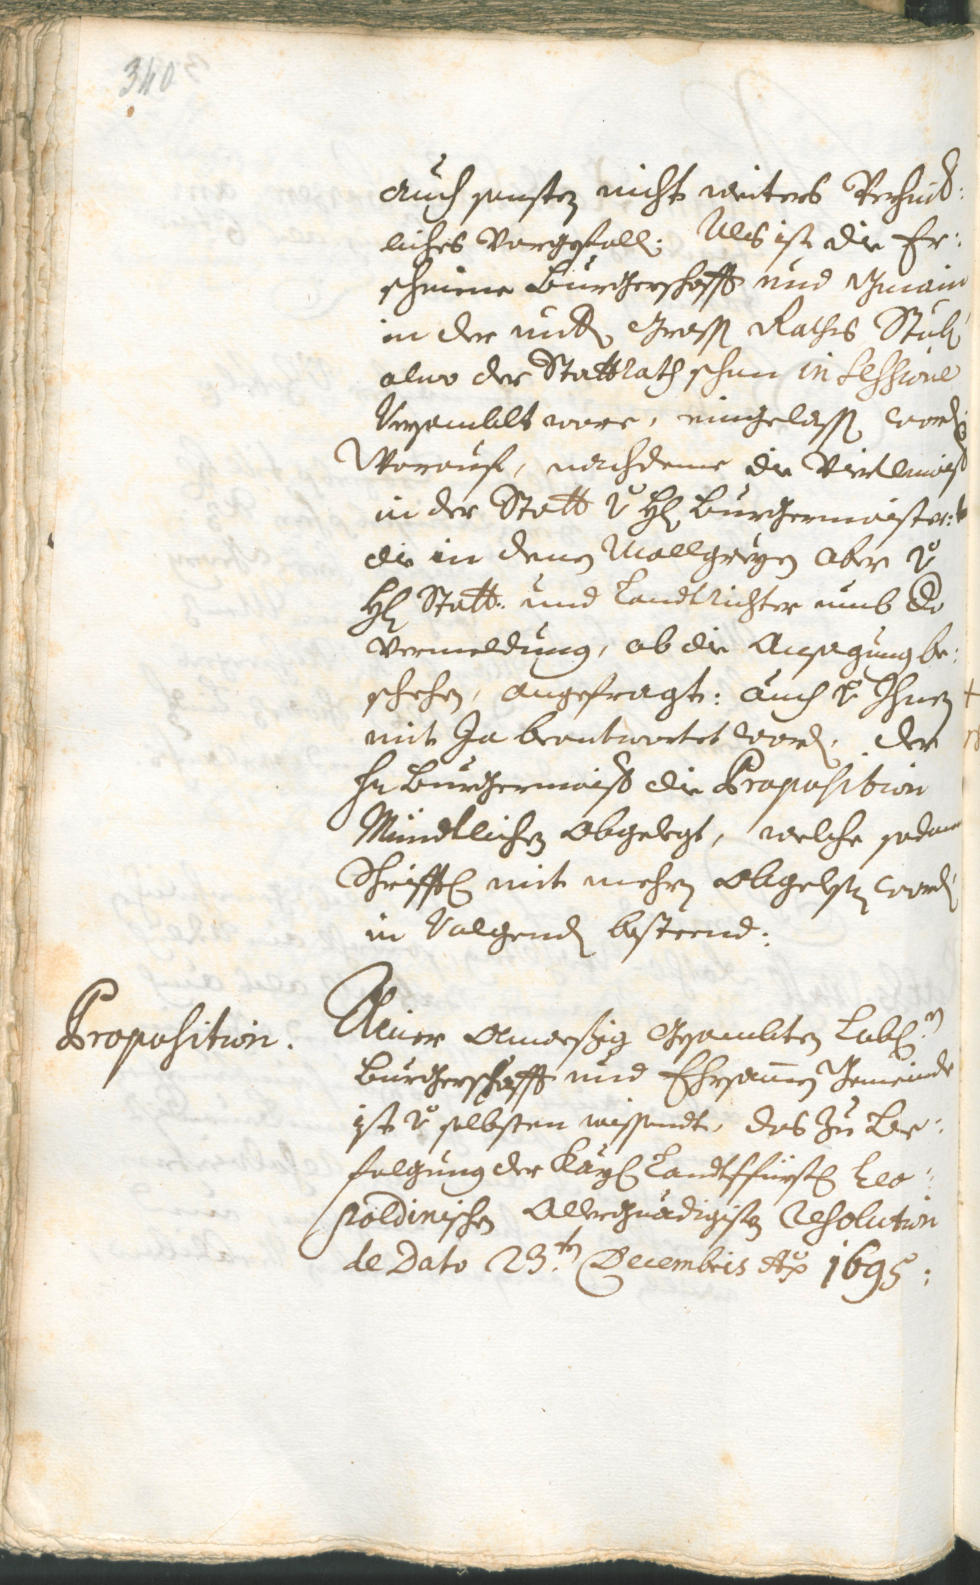 340
auch sonsten nichts weiters
liches Vorgefall: Als ist die Er:
schinene Burgerschafft und Gmain
in der undtn Gross Rathes Stubn
alwo der Stattrath schon in Sessione
Versamblt ware, eingelassn wordn
Worauf, nachdeme die Viertlmaist
in der Statt v Hl Burgermaister:
die in denen Mallgreyen aber v
Hl Statt: und Landtrichter umb die
Vermeldung, ob die Ansagung be:
schehen, angefragt: auch v Ihnen
mit Ja beantwortet wordn, der
Hr Burgermaist die Proposition
Mündtlichen abgelegt, welche sodan
Schrifftl mit mehrn abgelesn wordn
in Volgendn besteend:
Proposition.
Ainer alnoeßig Gesambten Lobl.n
Burgerschafft und Ehrsamen Gemeinde
ist v selbsten wissendt, das Zu Be:
folgung der Kayl Landtsfürstl Leo:
poldinischen Allergnädigisten Resolution
de Dato 23.tn Decembris Ao 1695: